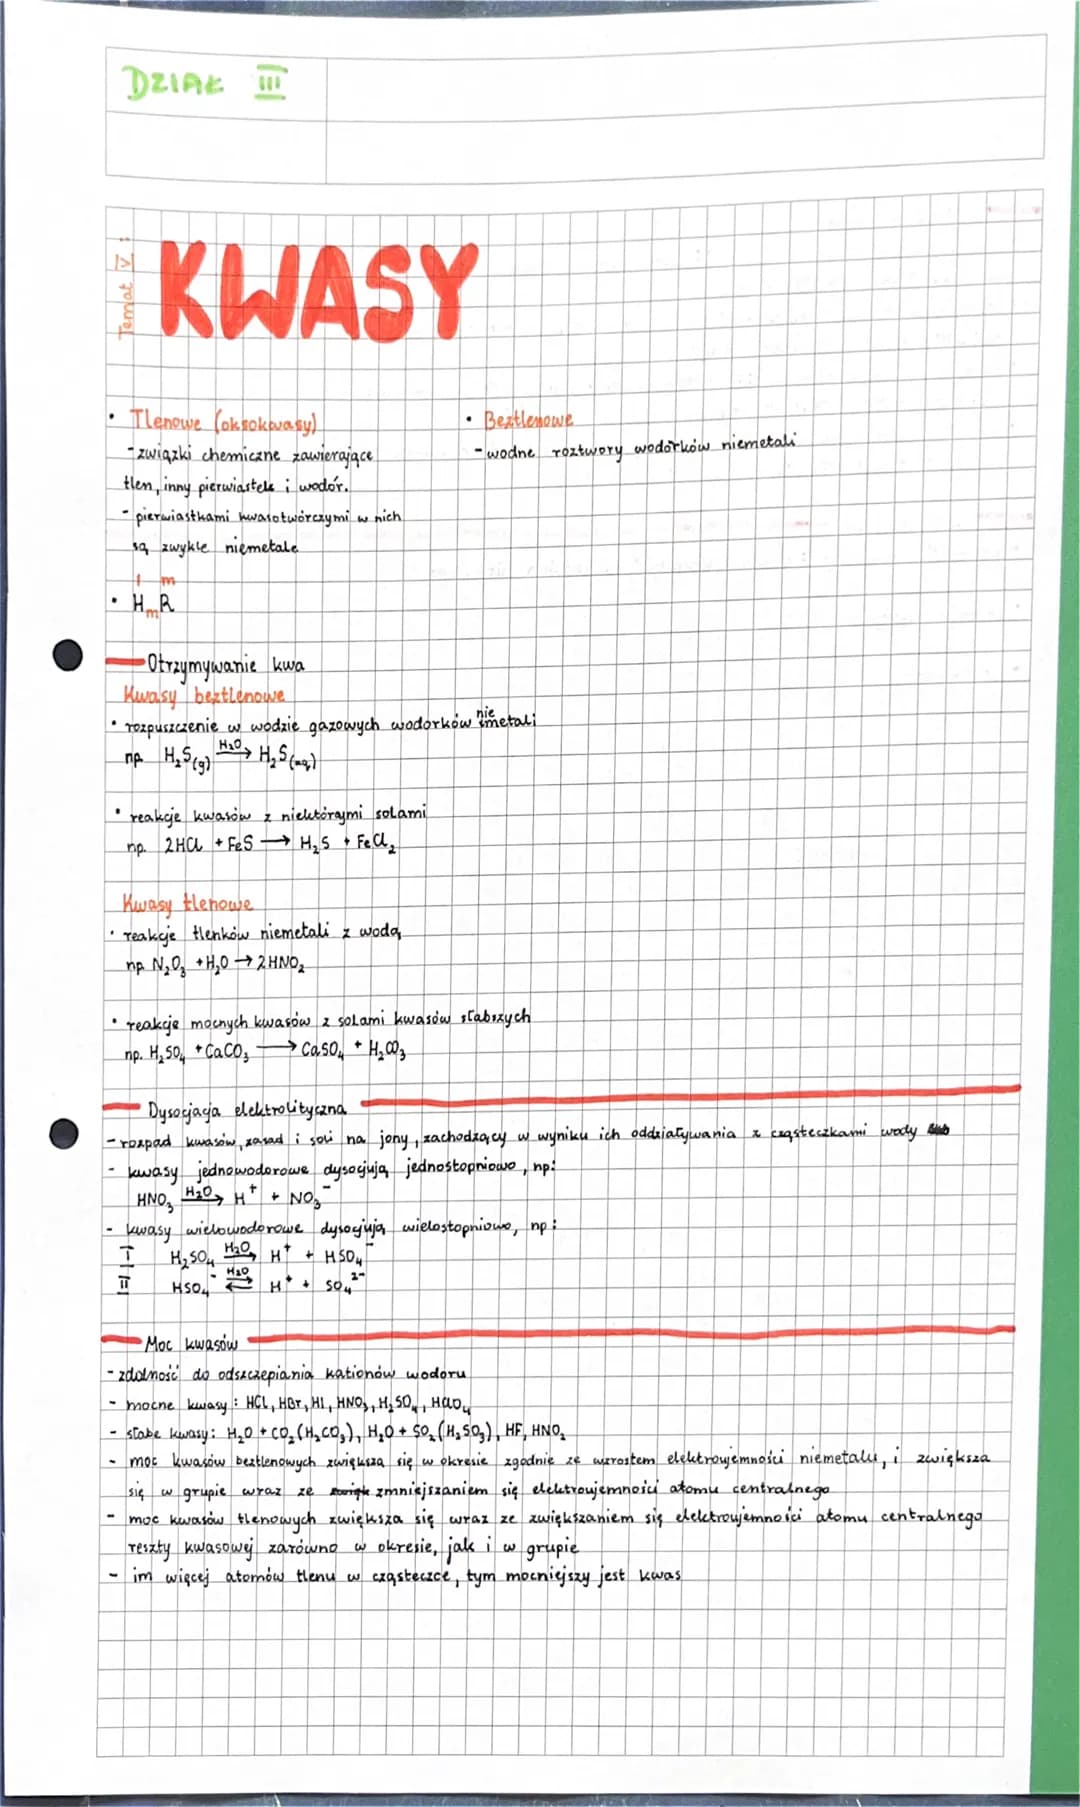 DZIAŁ III
Temat V:
KWASY
• Tlenowe (oksokwasy)
- związki chemiczne zawierające
tlen, inny pierwiastek i wodór.
- pierwiastkami kwasotwórczymi w nich
są zwykle niemetale
• Beztlenowe
- wodne roztwory wodorków niemetali
I m
• HₘR
Otrzymywanie kwa
Kwasy beztlenowe
• rozpuszczenie w wodzie gazowych wodorków niemetali
np. H₂S(g) —H₂O→ H₂S(aq)
• reakcje kwasów z niektórymi solami
np. 2HCl + FeS → H₂S + FeCl₂
Kwasy tlenowe
• reakcje tlenków niemetali z wodą
np. N₂O₃ + H₂O → 2HNO₂
• reakcje mocnych kwasów z solami kwasów słabszych
np. H₂SO₄ + CaCO₃ → CaSO₄ + H₂CO₃
Dysocjacja elektrolityczna
- rozpad kwasów, zasad i soli na jony, zachodzący w wyniku ich oddziaływania z cząsteczkami wody
- kwasy jednowodorowe dysocjują jednostopniowo, np:
HNO₃ —H₂O→ H⁺ + NO₃⁻
- kwasy wielowodorowe dysocjują wielostopniowo, np:
I H₂SO₄ —H₂O→ H⁺ + HSO₄⁻
II HSO₄⁻ ⇄H₂O H⁺ + SO₄²⁻
Moc kwasów
- zdolność do odszczepiania kationów wodoru
- mocne kwasy: HCl, HBr, HI, HNO₃, H₂SO₄, HClO₄
- słabe kwasy: H₂O + CO₂ (H₂CO₃), H₂O + SO₂ (H₂SO₃), HF, HNO₂
- moc kwasów beztlenowych zwiększa się w okresie zgodnie ze wzrostem elektroujemności niemetalu, i zwiększa
się w grupie wraz ze zmniejszaniem się elektroujemności atomu centralnego
- moc kwasów tlenowych zwiększa się wraz ze zwiększaniem się elektroujemności atomu centralnego
reszty kwasowej zarówno w okresie, jak i w grupie
- im więcej atomów tlenu w cząsteczce, tym mocniejszy jest kwas